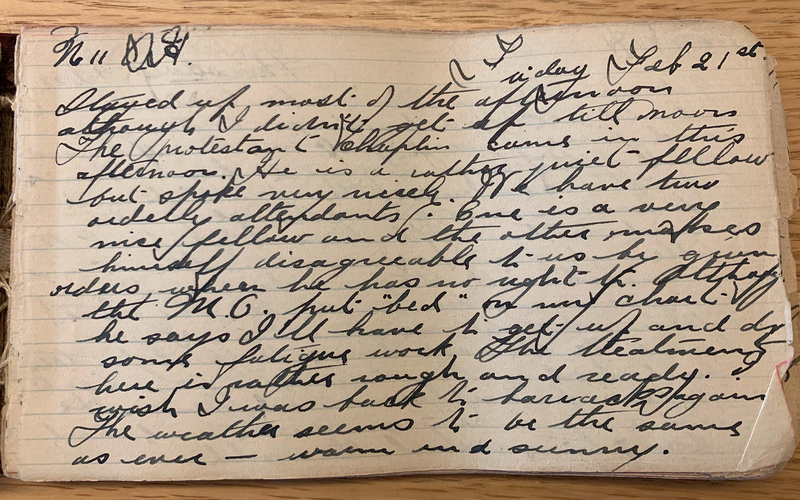 Friday Feb 21st.
Stayed up most of the afternoon
although I didn't get up till noon
The protestant Chaplin came in this
afternoon. He is a rather quiet fellow
but spoke very nicely. We have two
orderly attendants. One is a very
nice fellow and the other makes
himself disagreeable to us by givin
orders when he has no right to. Although
the M.O. put "bed" on my chart
he says I'll have to get up and do
some fatigue work. The treatment
here is rather rough and ready. I
wish I was back to barracks again
The weather seems to be the same
as ever – warm and sunny.